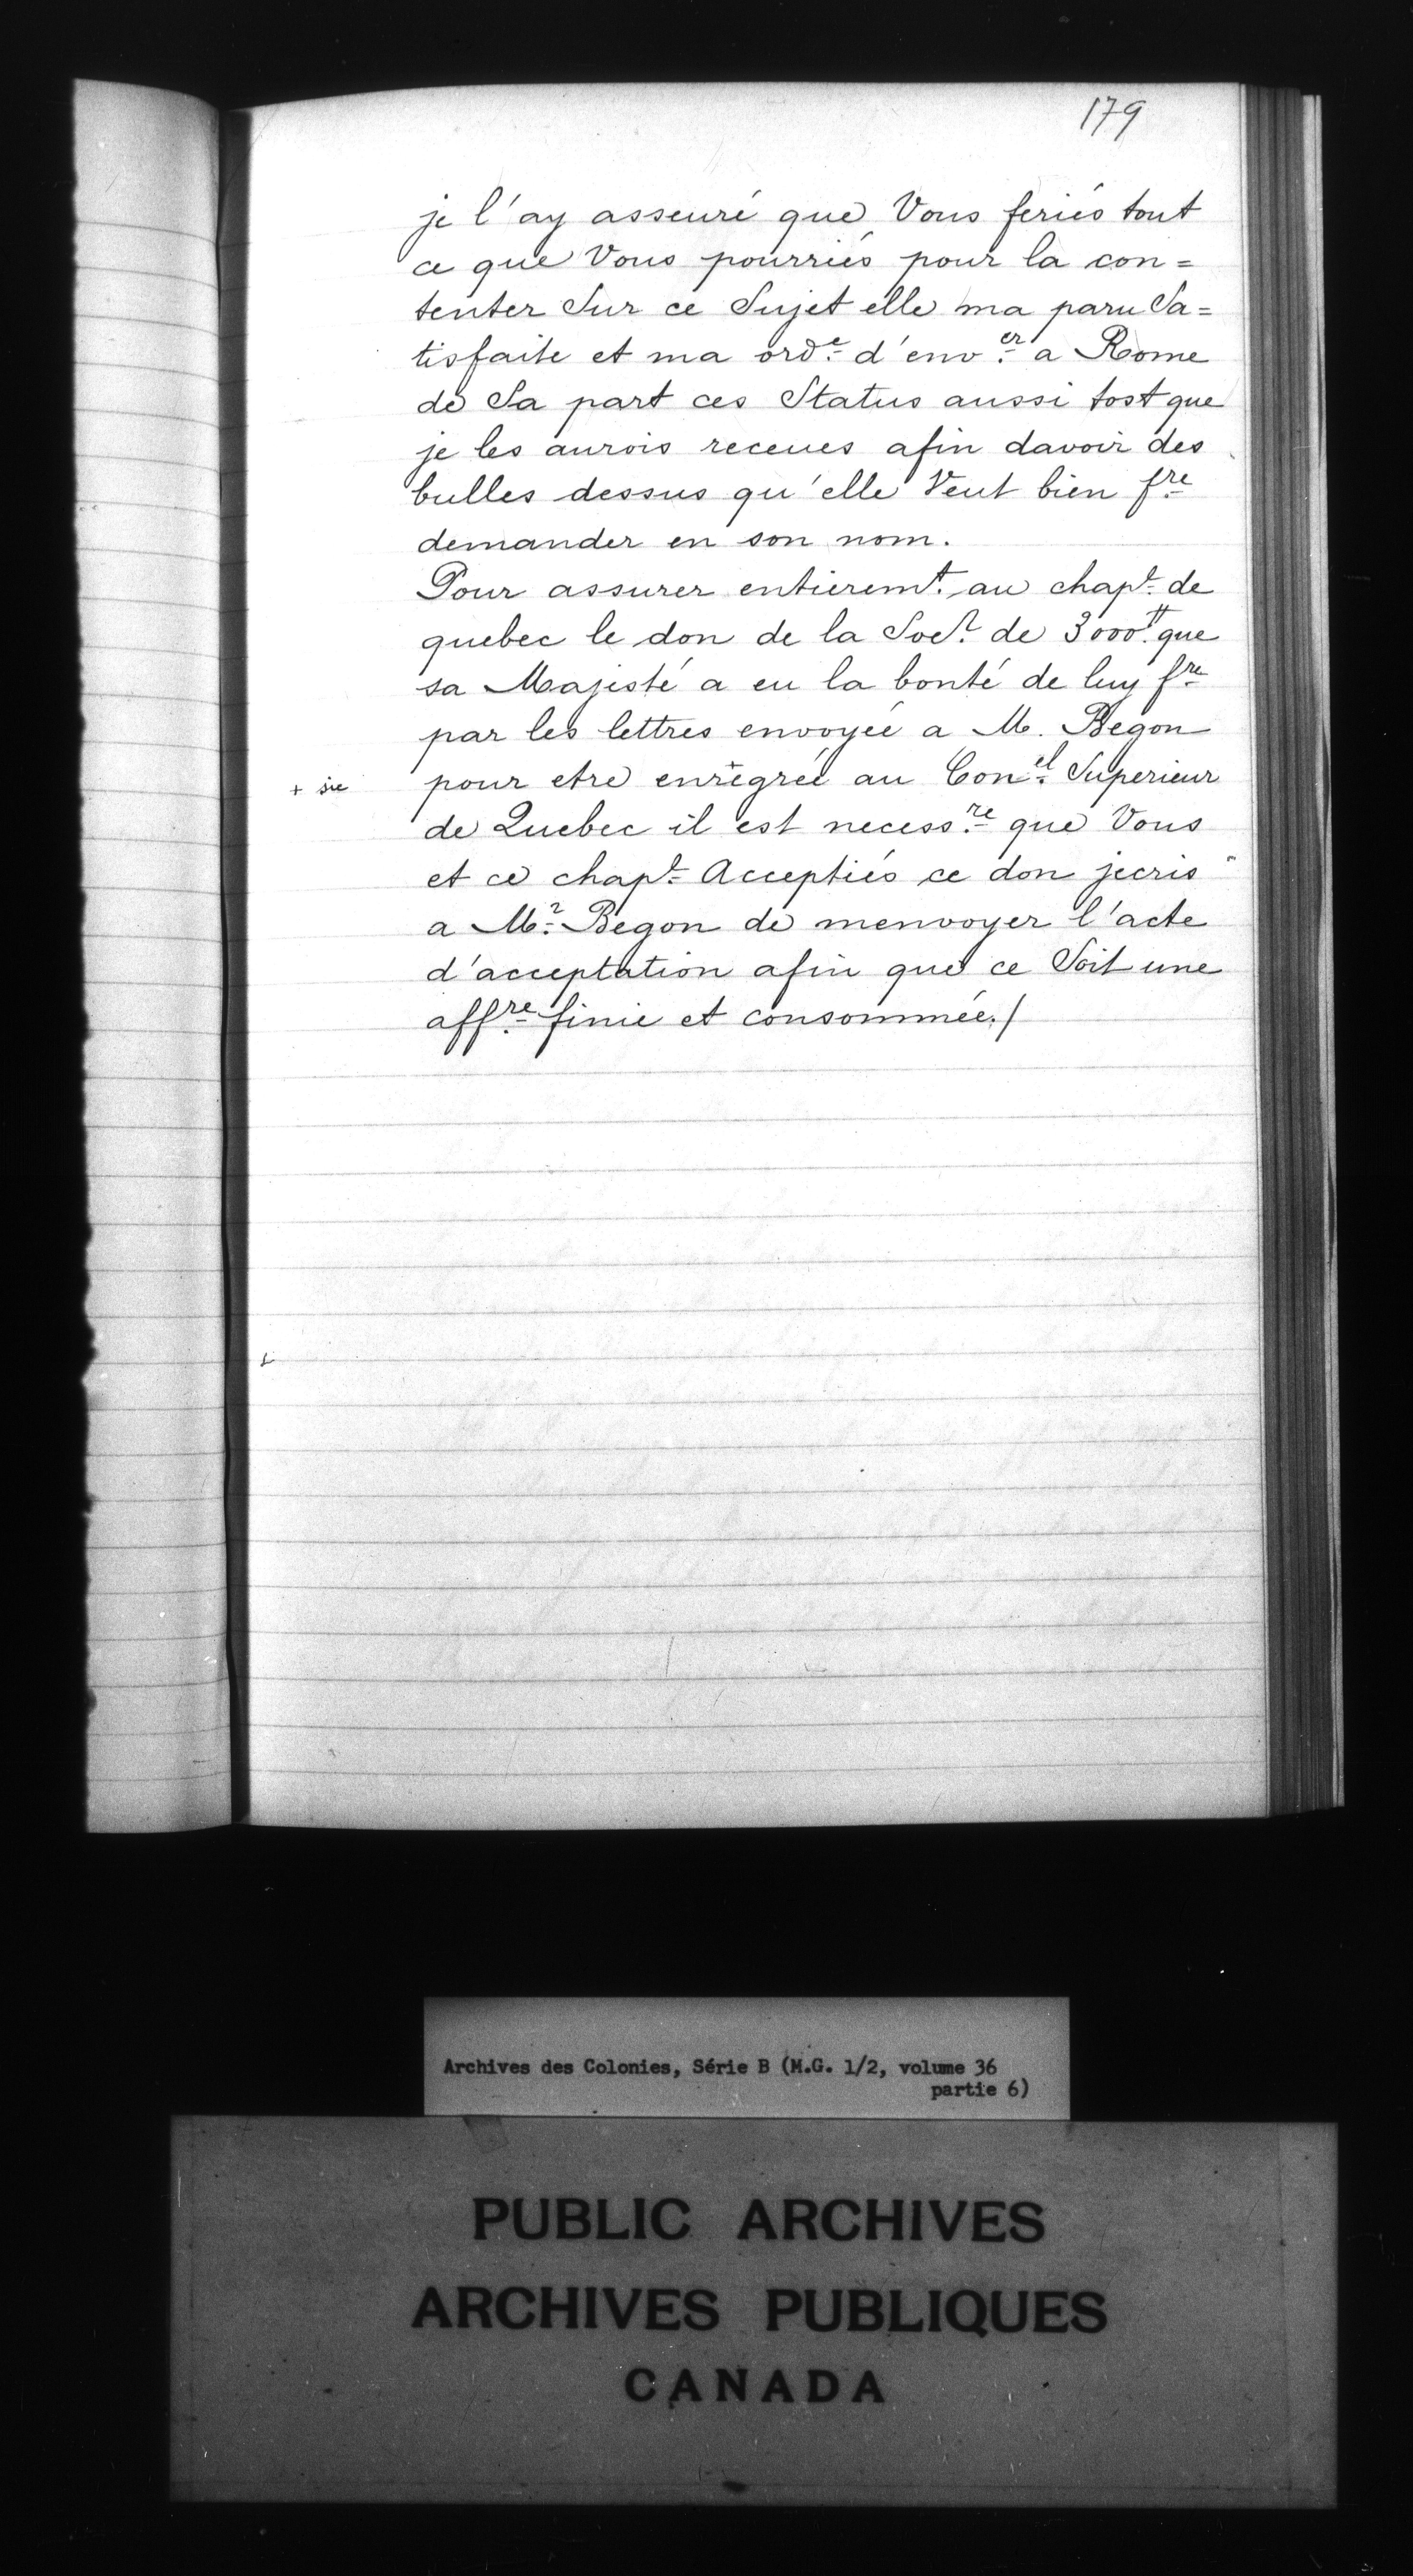 179
je l'ay asseuré que Vous feriés tout
ce que Vous pourriés pour la con=
tenter Sur ce Sujet elle ma paru Sa=
tisfaite et ma ord.e d'env.er a Rome
de Sa part ces Status aussi tost que
je les aurois receues afin davoir des
bulles dessus qu'elle Veut bien f.re
demander en son nom.
Pour assurer entierem.t au chap.t de
quebec le don de la Soe.? de 3000.tt que
sa Majesté a eu la bonté de luy f.re
par les lettres envoyée a M. Begon
+ sic pour etre enrêgrée au Con.el Superieur
de Quebec il est necess.re que Vous
et ce chap.t Acceptiés ce don jecris
a M.r Begon de menvoyer l'acte
d'acceptation afin que ce Soit une
aff.re finie et consommée./
Archives des Colonies, Série B (M.G. 1/2, volume 36
partie 6)
PUBLIC ARCHIVES
ARCHIVES PUBLIQUES
CANADA